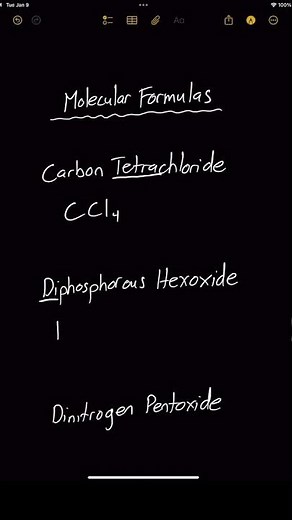 Tue Jan 9
100%
Aa
Molecular Formulas
Carbon Tetrachloride
CCl₄
Diphosphorous Hexoxide
|
Dinitrogen Pentoxide